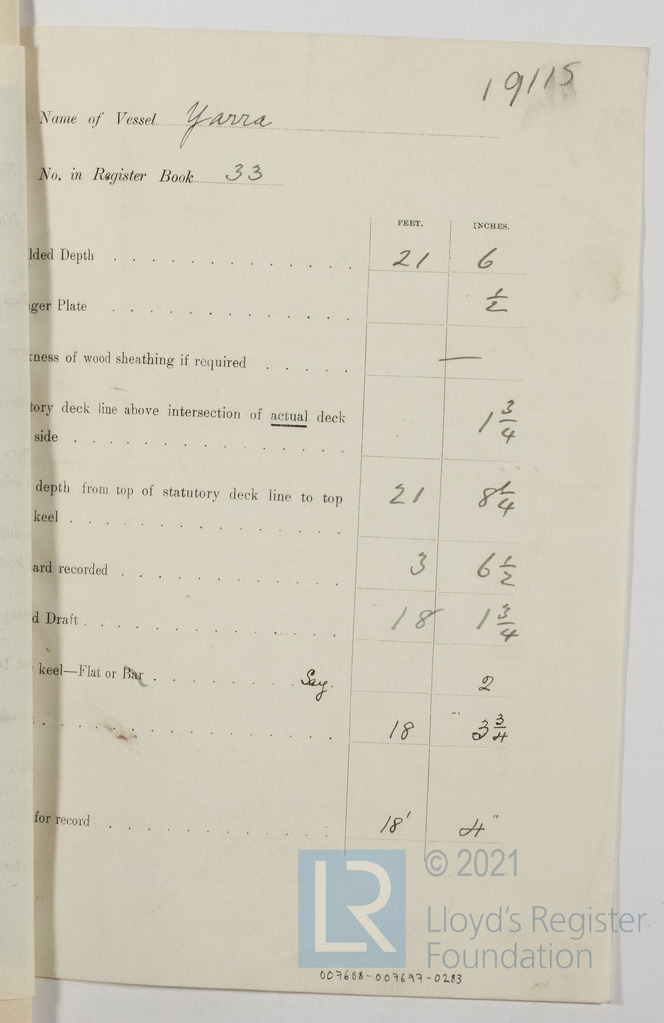 19115
Name of Vessel Yarra
No. in Register Book 33
FEET. INCHES.
lded Depth 21 6
ger Plate 1/2
ness of wood sheathing if required —
tory deck line above intersection of actual deck
side 1 3/4
depth from top of statutory deck line to top
keel 21 8 1/4
ard recorded 3 6 1/2
d Draft 18 1 3/4
keel—Flat or Bar Say. 2
18 3 3/4
for record 18' 4"
LR
© 2021
Lloyd's Register
Foundation
007688-007697-0283